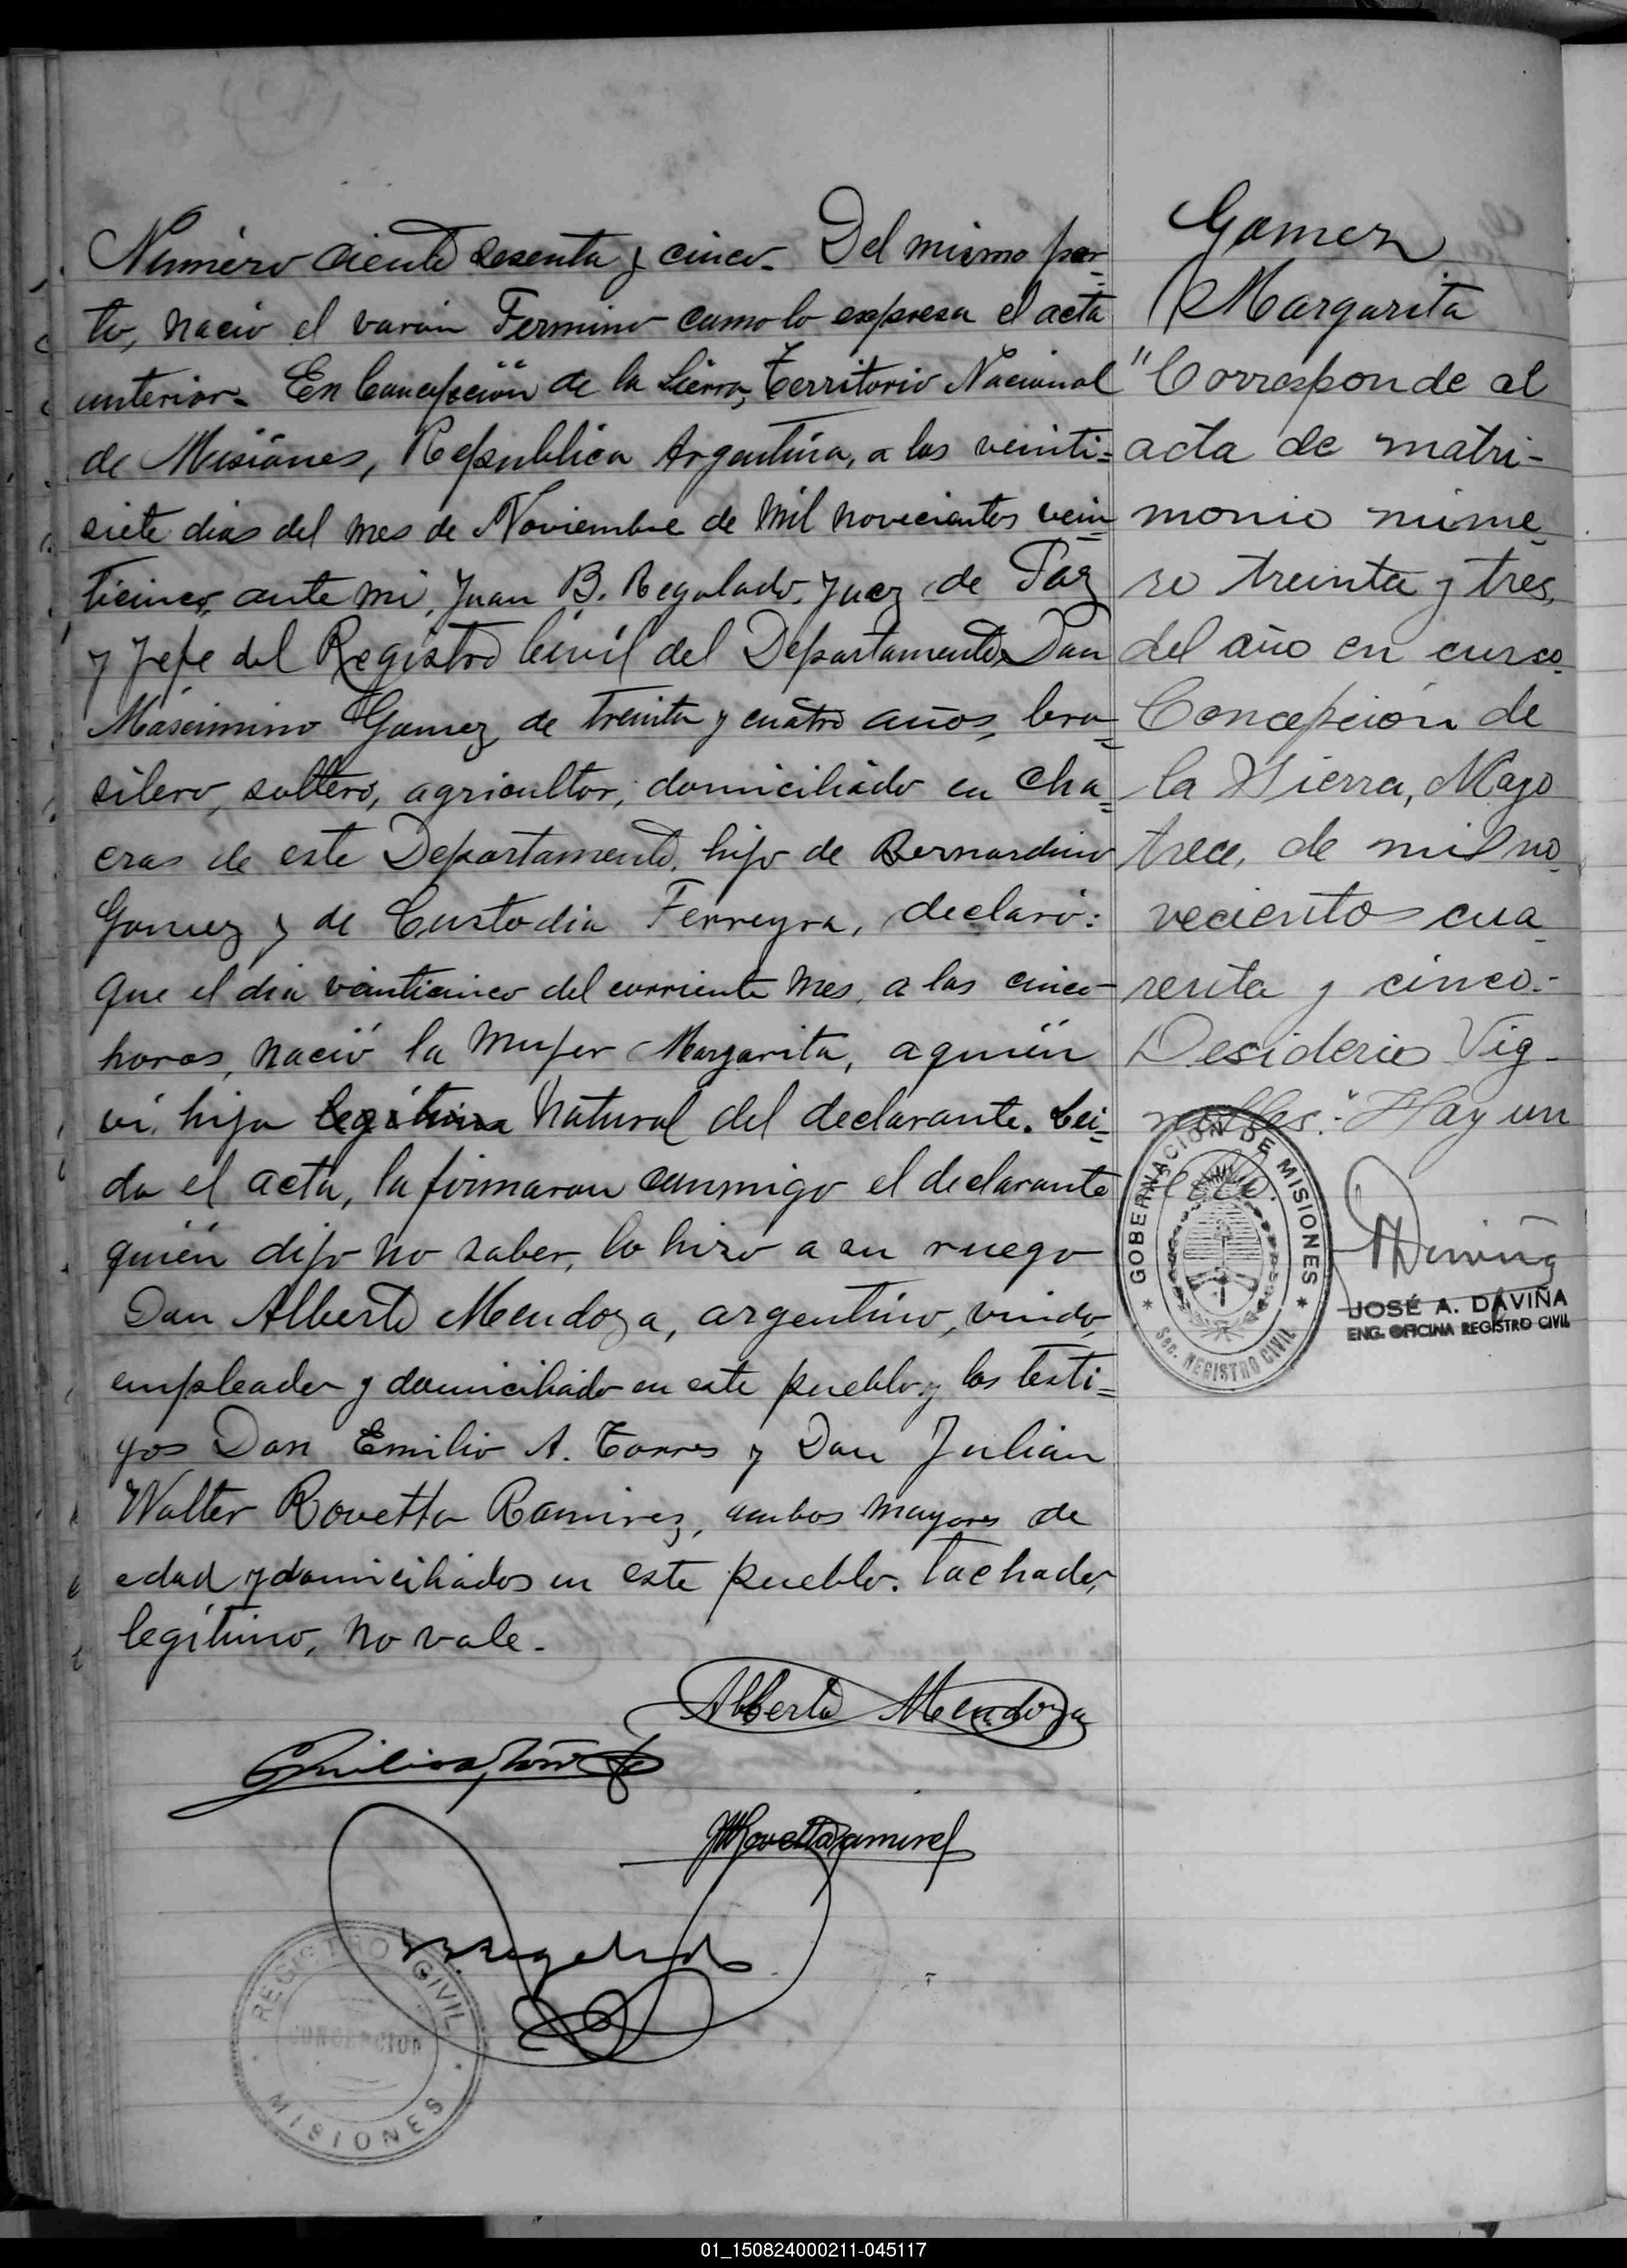 Número ciento sesenta y cinco. Del mismo par=
to, nació el varón Fermino como lo expresa el acta
anterior. En Concepción de la Sierra, Territorio Nacional
de Misiones, Republica Argentina, a los veinti=
siete dias del mes de Noviembre de mil novecientos vein=
ticinco, ante mi, Juan B. Regalado, Juez de Paz
y Jefe del Registro Civil del Departamento, Don
Maximino Gomez, de treinta y cuatro años, bra=
silero, soltero, agricultor, domiciliado en cha=
cras de este Departamento, hijo de Bernardino
Gomez y de Custodia Ferreyra, declaró:
Que el dia veinticinco del corriente mes, a las cinco
horas, nació la mujer Margarita, a quién
ví, hija legitima natural del declarante. Lei=
da el acta, la firmaron conmigo el declarante
quién dijo no saber, lo hizo a su ruego
Don Alberto Mendoza, argentino, viudo,
empleado y domiciliado en este pueblo y los testi=
gos Don Emilio A. Torres y Don Julián
Walter Rovetta Ramirez, ambos mayores de
edad y domiciliados en este pueblo. Tachado,
legítimo, no vale.
Alberto Mendoza
JWRovettaRamirez
REGISTRO CIVIL
CONCEPCION
MISIONES
Gomez
Margarita
"Corresponde al
acta de matri-
monio núme
ro treinta y tres,
del año en curso.
Concepción de
la Sierra, Mayo
trece, de mil no
vecientos cua
renta y cinco.-
Desiderio Vig-
nolles". Hay un
sello.
GOBERNACION DE MISIONES
Sec. REGISTRO CIVIL
JOSÉ A. DAVIÑA
ENG. OFICINA REGISTRO CIVIL
01_150824000211-045117